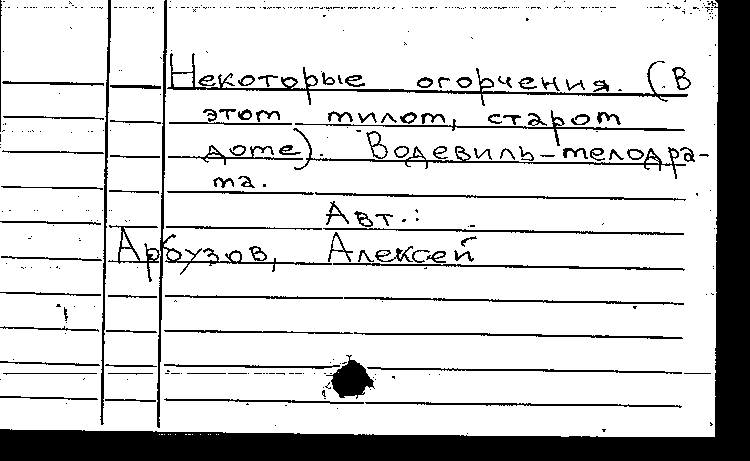 Некоторые огорчения. (В
этом милом, старом
доме). Водевиль-мелодра-
ма.
Авт.:
Арбузов, Алексей